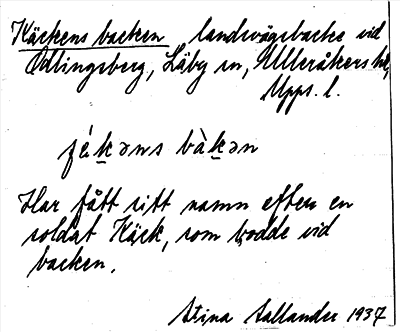 Käckens backen landsvägsbacke vid
Odlingsberg, Läby sn, Ulleråkers hd,
Upps. l.
bàkən
Har fått sitt namn efter en
soldat Käck, som bodde vid
backen.
Stina Sallander 1937